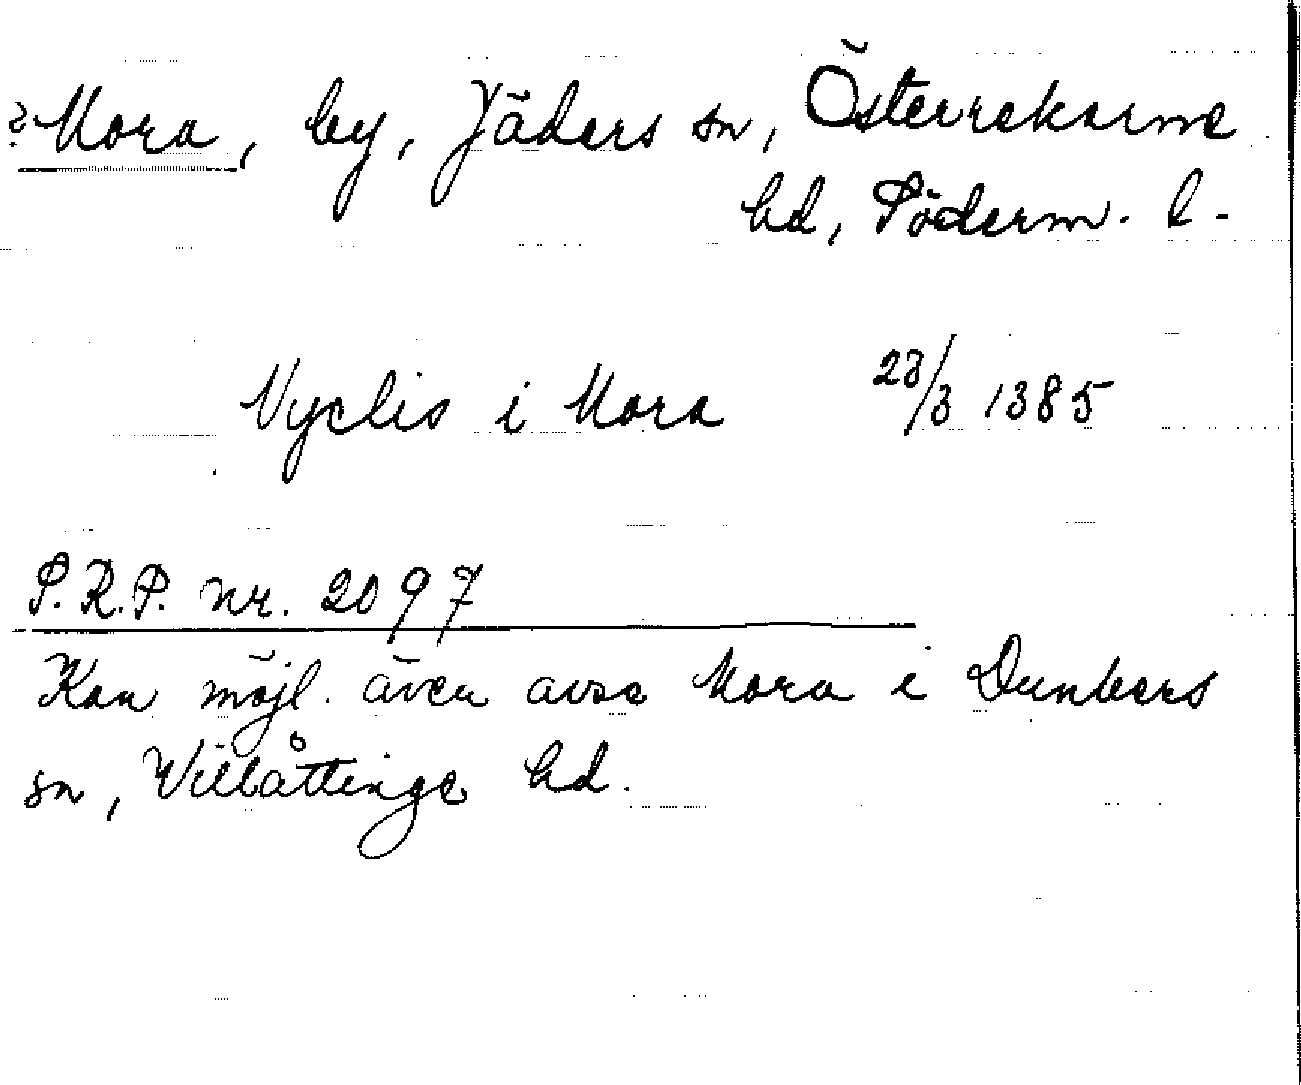 ? Mora, by, Jäders sn, Österrekarne
hd, Söderm. l.
Nyclis i Mora 23/3 1385
S.R.P. nr. 2097
Kan möjl. även avse Mora i Dunkers
sn, Villåttinge hd.